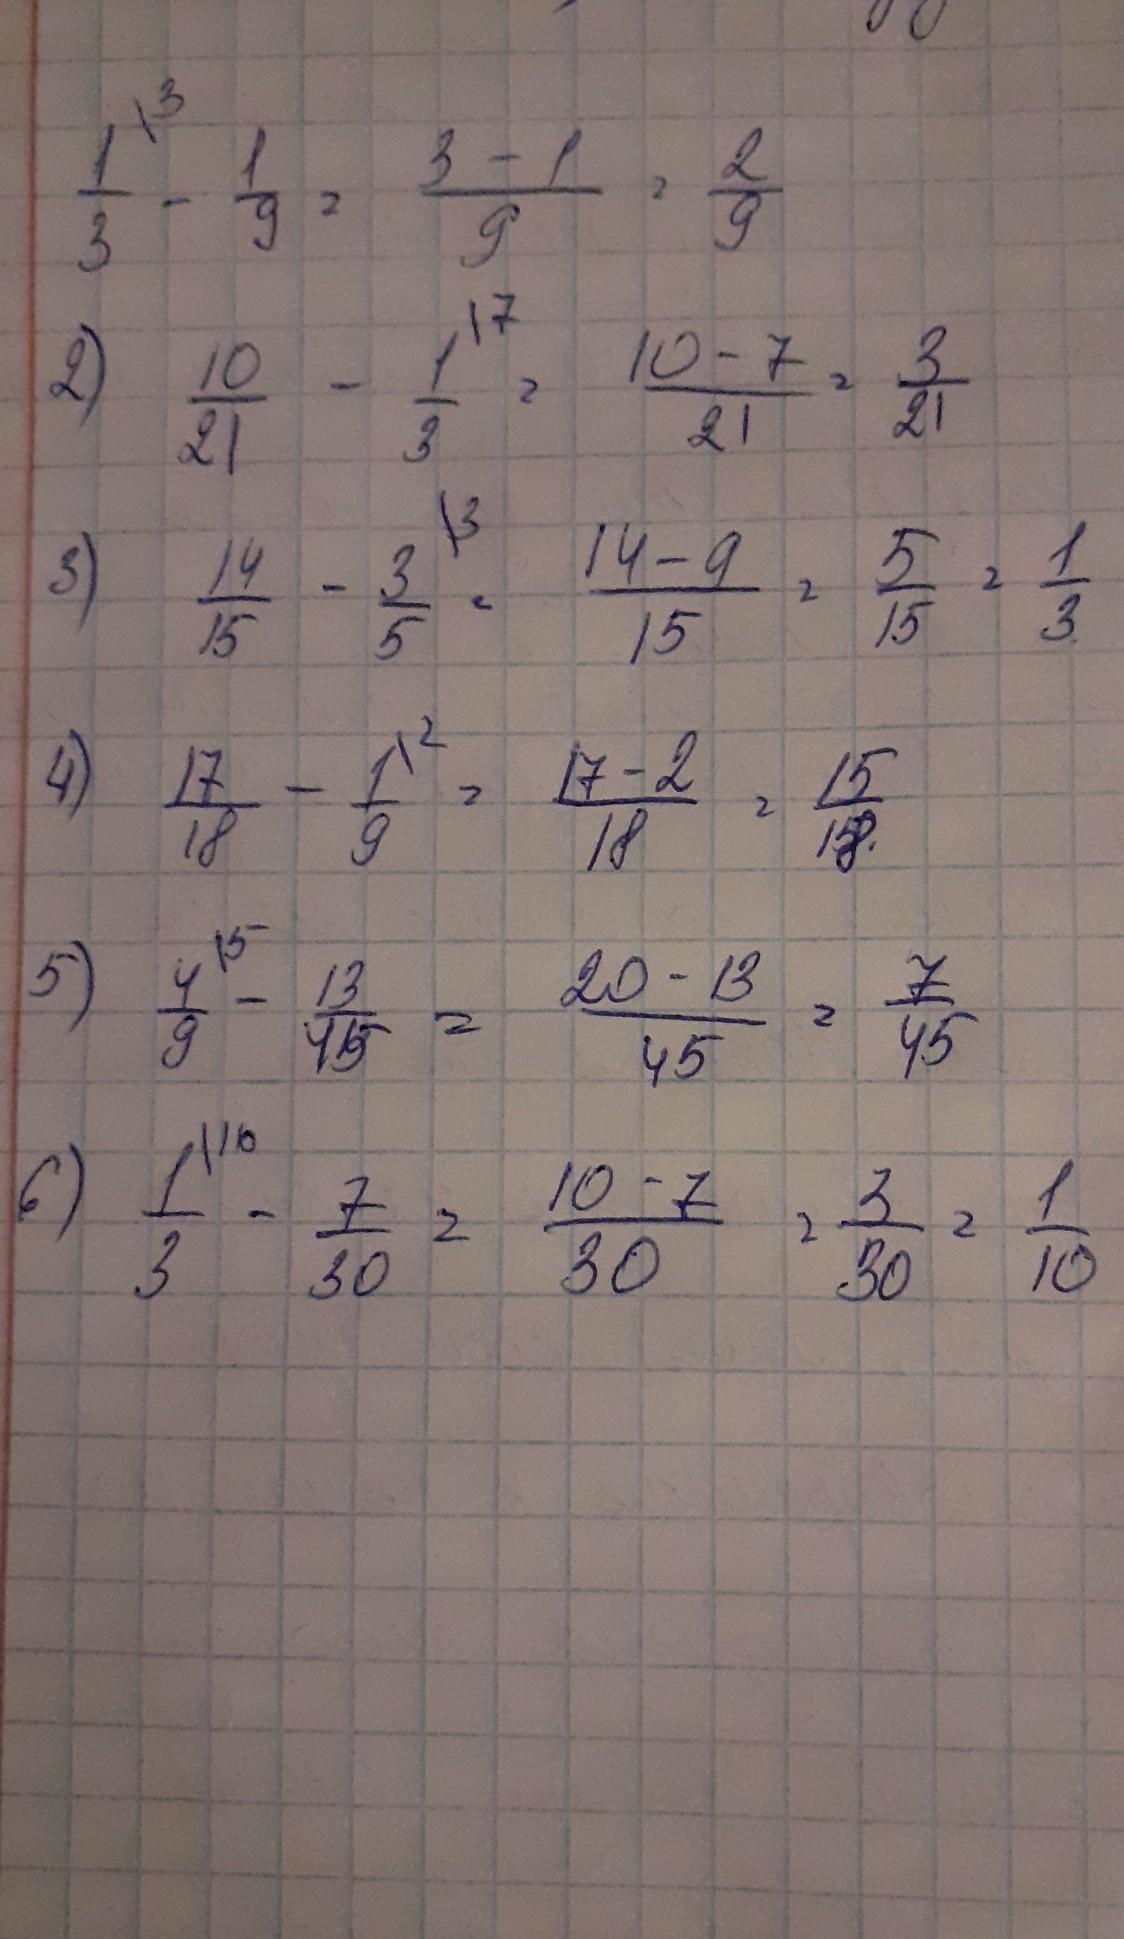 1/3 \3 - 1/9 = (3 - 1)/9 = 2/9
2) 10/21 - 1/3 \7 = (10 - 7)/21 = 3/21
3) 14/15 - 3/5 \3 = (14 - 9)/15 = 5/15 = 1/3
4) 17/18 - 1/9 \2 = (17 - 2)/18 = 15/18
5) 4/9 \5 - 13/45 = (20 - 13)/45 = 7/45
6) 1/3 \10 - 7/30 = (10 - 7)/30 = 3/30 = 1/10